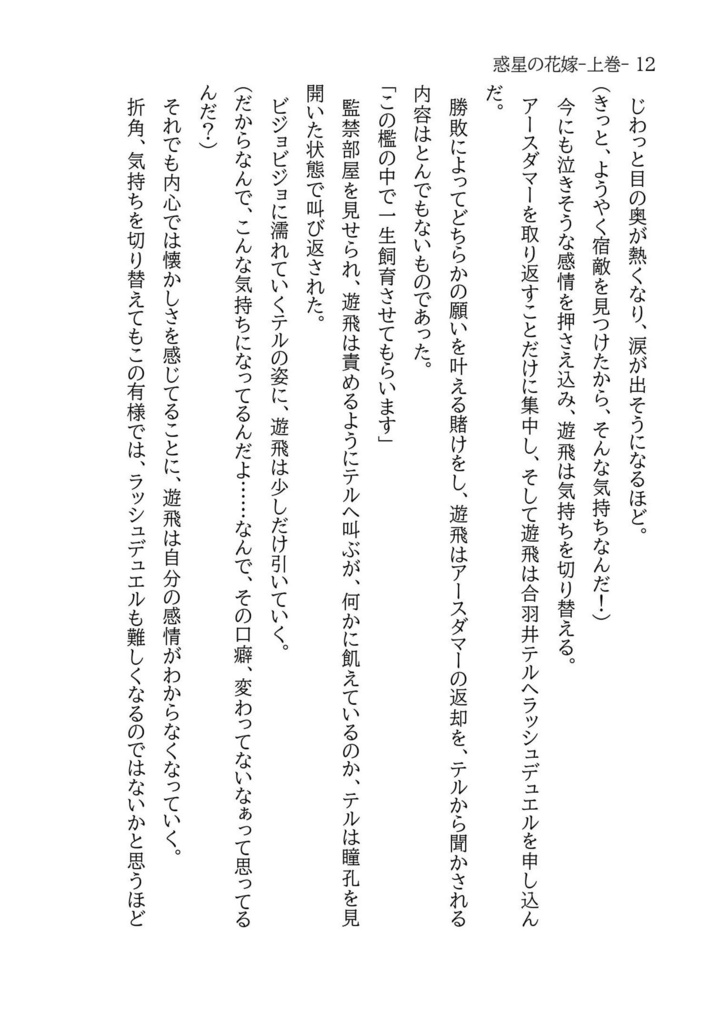 惑星の花嫁-上巻- 12
じわっと目の奥が熱くなり、涙が出そうになるほど。
(きっと、ようやく宿敵を見つけたから、そんな気持ちなんだ！)
今にも泣きそうな感情を押さえ込み、遊飛は気持ちを切り替える。
アースダマーを取り返すことだけに集中し、そして遊飛は合羽井テルへラッシュデュエルを申し込ん
だ。
勝敗によってどちらかの願いを叶える賭けをし、遊飛はアースダマーの返却を、テルから聞かされる
内容はとんでもないものであった。
「この檻の中で一生飼育させてもらいます」
監禁部屋を見せられ、遊飛は責めるようにテルへ叫ぶが、何かに飢えているのか、テルは瞳孔を見
開いた状態で叫び返された。
ビジョビジョに濡れていくテルの姿に、遊飛は少しだけ引いていく。
(だからなんで、こんな気持ちになってるんだよ……なんで、その口癖、変わってないなぁって思ってる
んだ？)
それでも内心では懐かしさを感じてることに、遊飛は自分の感情がわからなくなっていく。
折角、気持ちを切り替えてもこの有様では、ラッシュデュエルも難しくなるのではないかと思うほど